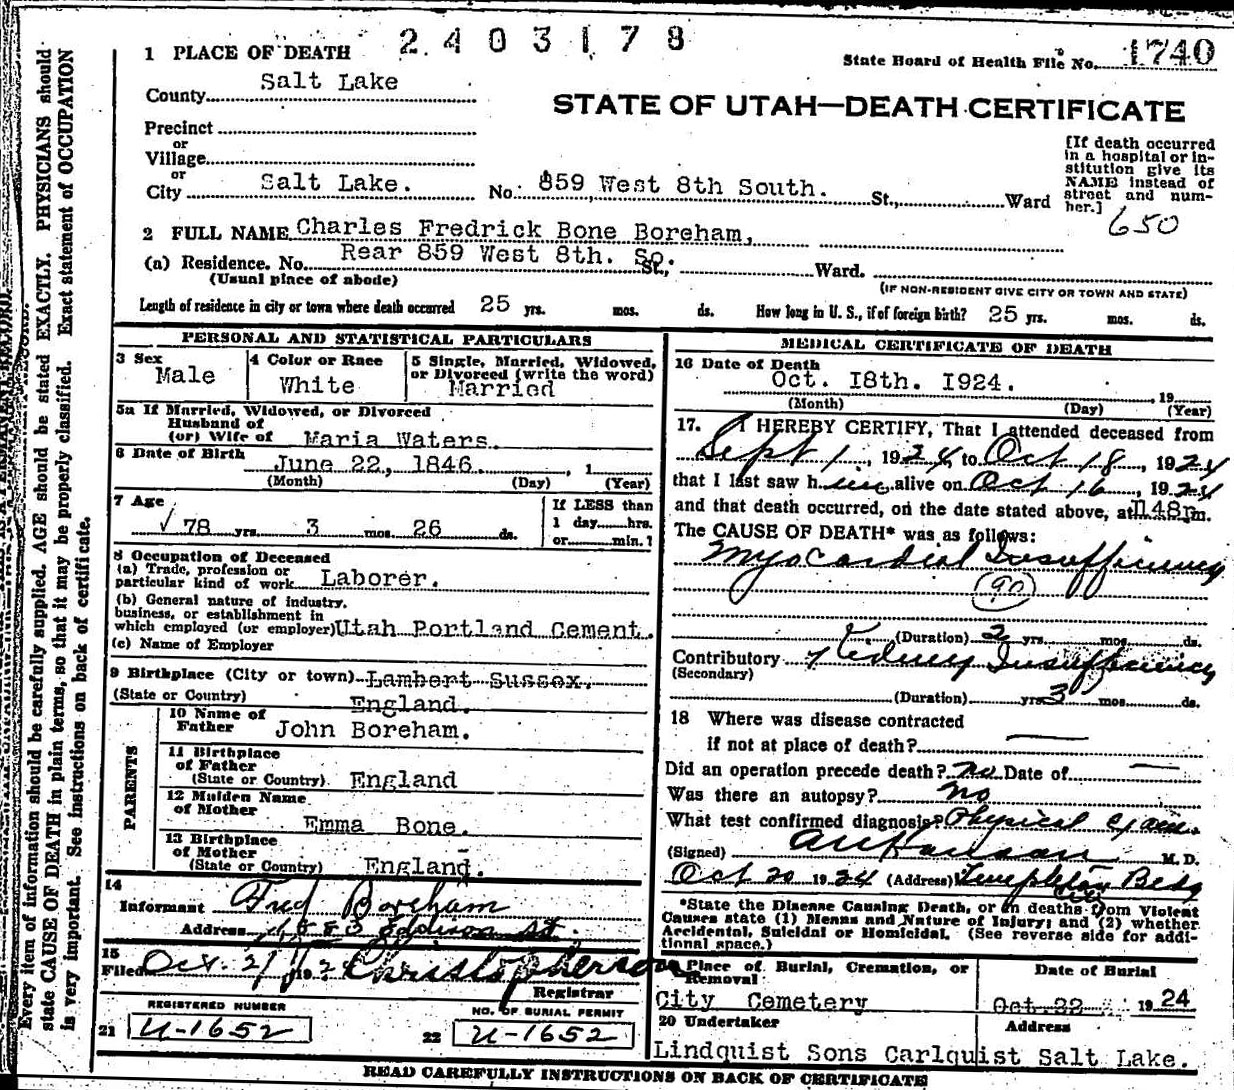 2403178
State Board of Health File No. 1740
1 PLACE OF DEATH
County Salt Lake
STATE OF UTAH—DEATH CERTIFICATE
Precinct
or
Village
or
City Salt Lake. No. 859 West 8th South. St., Ward
[If death occurred
in a hospital or in-
stitution give its
NAME instead of
street and num-
ber.]
650
2 FULL NAME Charles Fredrick Bone Boreham,
(a) Residence. No. Rear 859 West 8th. So. St., Ward.
(Usual place of abode)
(IF NON-RESIDENT GIVE CITY OR TOWN AND STATE)
Length of residence in city or town where death occurred 25 yrs. mos. ds. How long in U. S., if of foreign birth? 25 yrs. mos. ds.
PERSONAL AND STATISTICAL PARTICULARS
3 Sex
Male
4 Color or Race
White
5 Single, Married, Widowed,
or Divorced (write the word)
Married
5a If Married, Widowed, or Divorced
Husband of
(or) Wife of Maria Waters
6 Date of Birth
June 22, 1846. , 1
(Month) (Day) (Year)
7 Age
√ 78 yrs. 3 mos. 26 ds.
If LESS than
1 day hrs.
or min.?
8 Occupation of Deceased
(a) Trade, profession or
particular kind of work Laborer.
(b) General nature of industry,
business, or establishment in
which employed (or employer) Utah Portland Cement.
(c) Name of Employer
9 Birthplace (City or town) Lambert Sussex.
(State or Country) England.
PARENTS
10 Name of
Father John Boreham.
11 Birthplace
of Father
(State or Country) England
12 Maiden Name
of Mother
Emma Bone.
13 Birthplace
of Mother
(State or Country) England.
14
Informant Fred Boreham
Address
15
Filed Oct. 21 192 Christopherson
Registrar
REGISTERED NUMBER
21 U-1652
NO. OF BURIAL PERMIT
22 U-1652
MEDICAL CERTIFICATE OF DEATH
16 Date of Death
Oct. I8th. I924. , 19
(Month) (Day) (Year)
17. I HEREBY CERTIFY, That I attended deceased from
Sept 1 , 1924, to Oct 18 , 1924
that I last saw him alive on Oct 16 , 1924
and that death occurred, on the date stated above, at 1148p m.
The CAUSE OF DEATH* was as follows:
Myocardial Insufficiency
90
(Duration) 2 yrs. mos. ds.
Contributory Kidney Insufficiency
(Secondary)
(Duration) yrs. 3 mos. ds.
18 Where was disease contracted
if not at place of death?
Did an operation precede death? no Date of
Was there an autopsy? no
What test confirmed diagnosis? Physical exam.
(Signed) M. D.
Oct 20 1924 (Address) Templeton Bldg
City
*State the Disease Causing Death, or in deaths from Violent
Causes state (1) Means and Nature of Injury; and (2) whether
Accidental, Suicidal or Homicidal. (See reverse side for addi-
tional space.)
Place of Burial, Cremation, or
Removal
City Cemetery
Date of Burial
Oct. 22 1924
20 Undertaker
Address
Lindquist Sons Carlquist Salt Lake.
READ CAREFULLY INSTRUCTIONS ON BACK OF CERTIFICATE
Every item of information should be carefully supplied. AGE should be stated EXACTLY. PHYSICIANS should
state CAUSE OF DEATH in plain terms, so that it may be properly classified. Exact statement of OCCUPATION
is very important. See instructions on back of certificate.